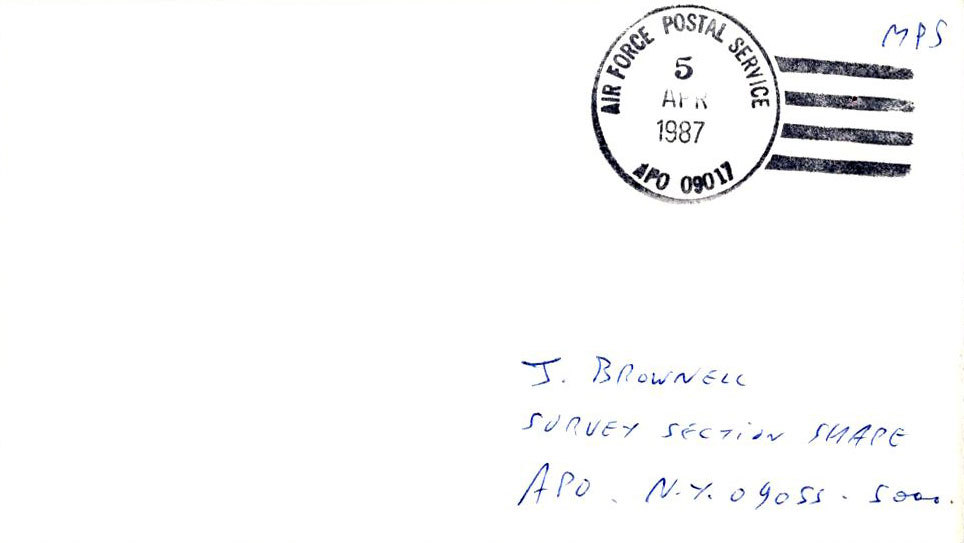 MPS
AIR FORCE POSTAL SERVICE
5
APR
1987
APO 09017
J. BROWNELL
SURVEY SECTION SHAPE
APO. N.Y. 09055 - 5000.